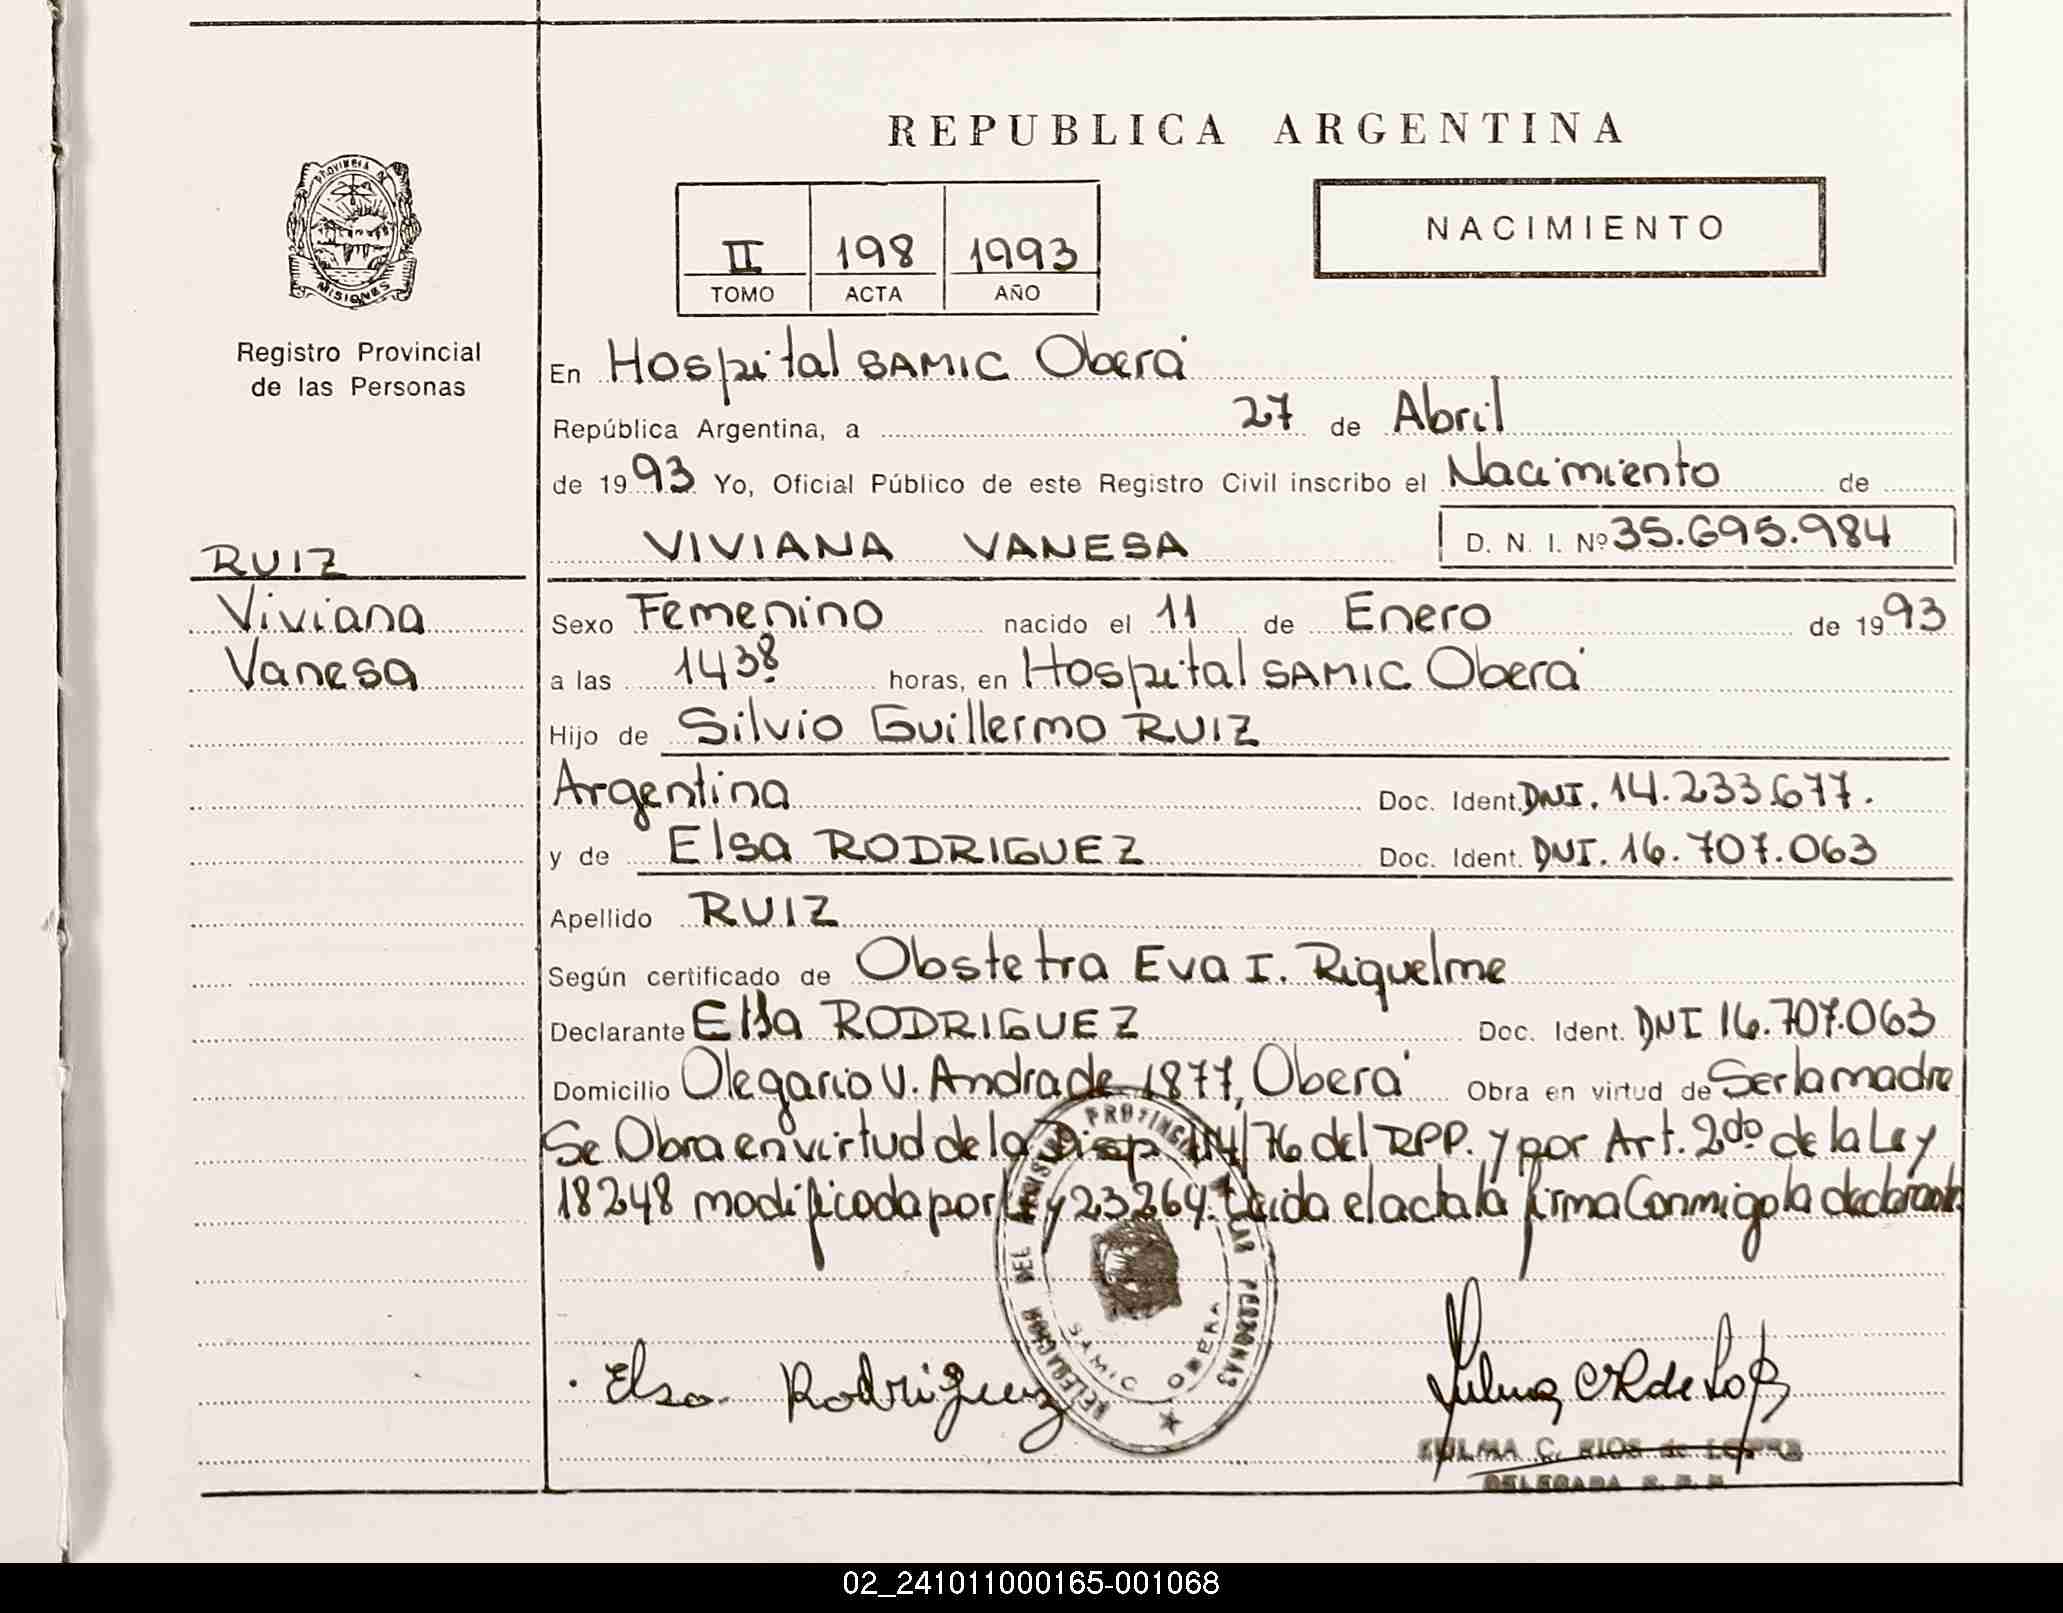 REPUBLICA ARGENTINA
PROVINCIA DE
MISIONES
Registro Provincial
de las Personas
II 198 1993
TOMO ACTA AÑO
NACIMIENTO
En Hospital SAMIC Oberá
República Argentina, a 27 de Abril
de 1993 Yo, Oficial Público de este Registro Civil inscribo el Nacimiento de
VIVIANA VANESA D. N. I. Nº 35.695.984
RUIZ
Viviana
Vanesa
Sexo Femenino nacido el 11 de Enero de 1993
a las 14 38 horas, en Hospital SAMIC Oberá
Hijo de Silvio Guillermo RUIZ
Argentina Doc. Ident. DNI. 14.233.677.
y de Elsa RODRIGUEZ Doc. Ident. DNI. 16.707.063
Apellido RUIZ
Según certificado de Obstetra Eva I. Riquelme
Declarante Elsa RODRIGUEZ Doc. Ident. DNI 16.707.063
Domicilio Olegario V. Andrade 1877, Oberá Obra en virtud de Ser la madre
Se Obra en virtud de la Disp /76 del RPP. y por Art. 2do de la Ley
18248 modificada por Ley 23264. Leida el acta la firma Conmigo la declarante
Elsa Rodriguez
Zulma C R de López
ZULMA C. RIOS de LOPEZ
DELEGADA R. P. P.
DELEGACION DEL REGISTRO PROVINCIAL DE LAS PERSONAS
SAMIC OBERA
02_241011000165-001068